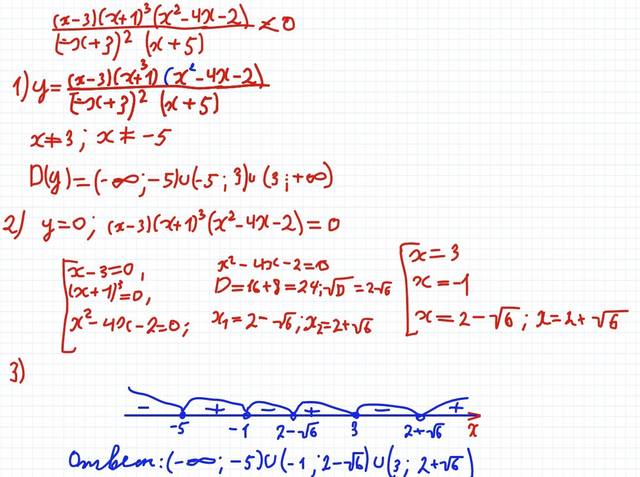 (x-3)(x+1)³(x²-4x-2)/(-x+3)²(x+5) < 0
1) y = (x-3)(x+1)³(x²-4x-2)/(-x+3)²(x+5)
x≠3; x≠-5
D(y)=(-∞;-5)∪(-5;3)∪(3;+∞)
2) y=0; (x-3)(x+1)³(x²-4x-2)=0
[x-3=0,
(x+1)³=0,
x²-4x-2=0;
x²-4x-2=0
D=16+8=24; √D=2√6
x₁=2-√6; x₂=2+√6
[x=3
x=-1
x=2-√6; x=2+√6
3)
- + - + - +
-5 -1 2-√6 3 2+√6 x
Ответ: (-∞; -5)∪(-1; 2-√6)∪(3; 2+√6)